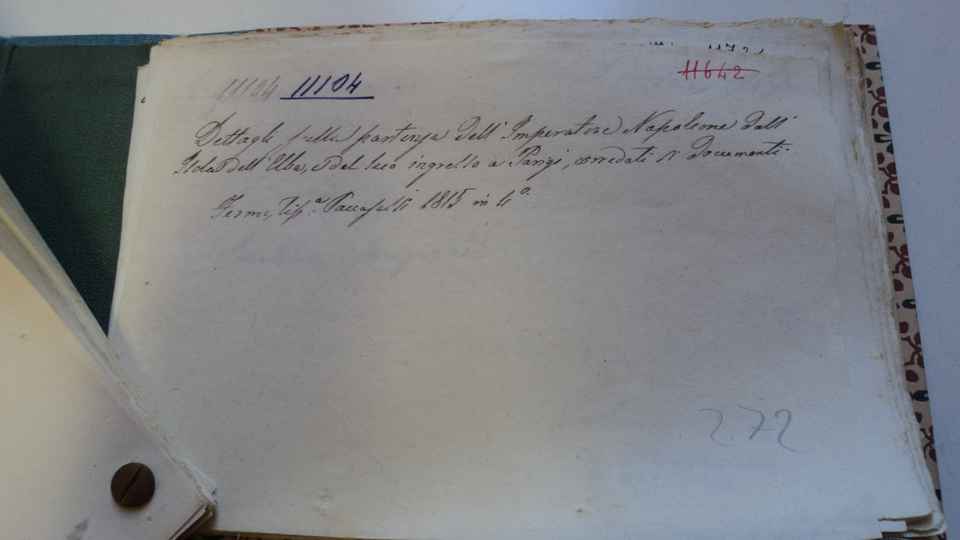 11104 11104
11642
Dettagli sulla partenza dell' Imperatore Napoleone dall'
Isola dell' Elba, e del suo ingresso a Parigi, corredati di Documenti.
Fermo, Tip.ª Paccasassi 1815 in 4º.
272